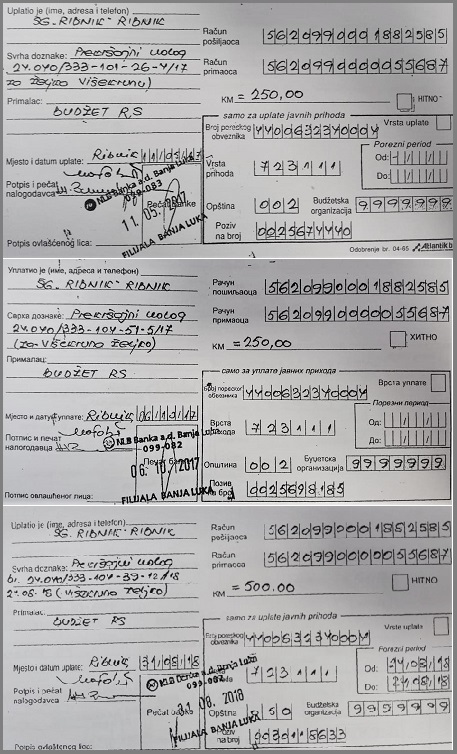 Uplatio je (ime, adresa i telefon)
ŠG. RIBNIK - RIBNIK
Račun
pošiljaoca
5620990001882585
Svrha doznake: Prekršajni nalog
24.040/333-101-26-4/17
za Željko Višekruna)
Račun
primaoca
5620990000055687
KM = 250,00
HITNO
Primalac:
BUDŽET R,S
samo za uplate javnih prihoda
Broj poreskog
obveznika
4400632340004
Vrsta uplate
Poreski period
Od:
Do:
Mjesto i datum uplate: Ribnik 110517
Vrsta
prihoda
723111
Potpis i pečat
nalogodavca
NLB Banka a.d. Banja Luka
099-083
Pečat banke
11. 05. 2017
FILIJALA BANJA LUKA
Opština
002
Budžetska
organizacija
9999999
Poziv
na broj
0025674440
Potpis ovlašćenog lica:
Odobrenje br. 04-65
Atlantik b
Уплатио је (име, адреса и телефон)
ŠG. RIBNIK - RIBNIK
Рачун
пошиљаоца
5620990001882585
Сврха дознаке: Prekršajni nalog
24.040/333-104-51-5/17
(za Višekruna Željko)
Рачун
примаоца
5620990000055687
KM = 250,00
ХИТНО
Прималац:
BUDŽET RS
само за уплате јавних прихода
Број пореског
обвезника
4400632340004
Врста уплате
Порески период
Од:
До:
Мјесто и датум уплате: Ribnik 061017
Врста
прихода
723111
Потпис и печат
налогодавца
NLB Banka a.d. Banja Luka
099-082
Печат банке
06. 10. 2017
FILIJALA BANJA LUKA
Општина
002
Буџетска
организација
9999999
Позив
на број
0025698185
Потпис овлашћеног лица:
Uplatio je (ime, adresa i telefon)
ŠG. RIBNIK - RIBNIK
Račun
pošiljaoca
5620990001852585
Svrha doznake: Prekršajni nalog
br. 24.040/333-104-39-12/18
(Višekruna Željko)
Račun
primaoca
5620990000055687
KM = 500,00
HITNO
Primalac:
BUDŽET RS
samo za uplate javnih prihoda
Broj poreskog
obveznika
4400632340004
Vrste uplate
Poreski period
Od:
Do:
Mjesto i datum uplate: Ribnik 310818
723111
Potpis i pečat
nalogodavca
099-082
Pečat banke
31. 08. 2018
FILIJALA BANJA LUKA
Opština
Budžetska
organizacija
9999999
Poziv
na broj
Potpis ovlaštenog lica: